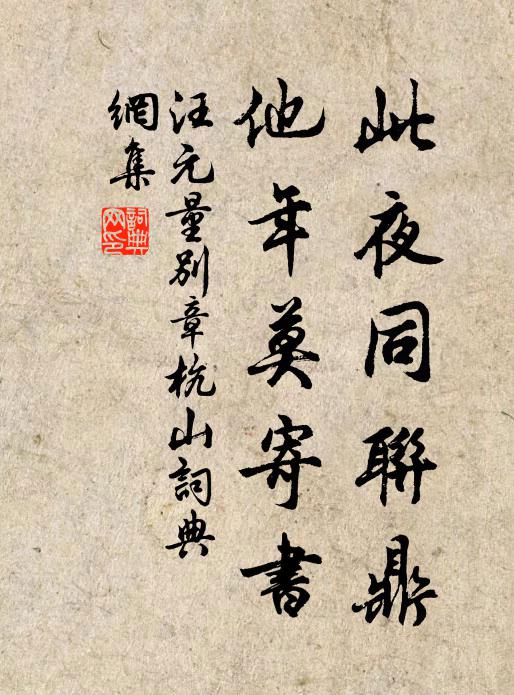 此夜同聯鼎
他年莫寄書
汪元量別章杭山詞典
網集
詞典網印